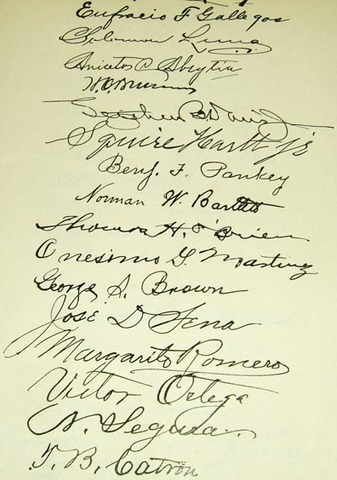 Eufracio F Gallegos
Solomon Luna
Aniceto C Abeytia
Stephen B Davis Jr
Squire Hartt Jr
Benj. F. Pankey
Norman W. Bartlett
Thomas H. O'Brien
Onesimo G. Martinez
George S. Brown
Jose D Sena
Margarito Romero
Victor Ortega
N. Segura
T. B. Catron